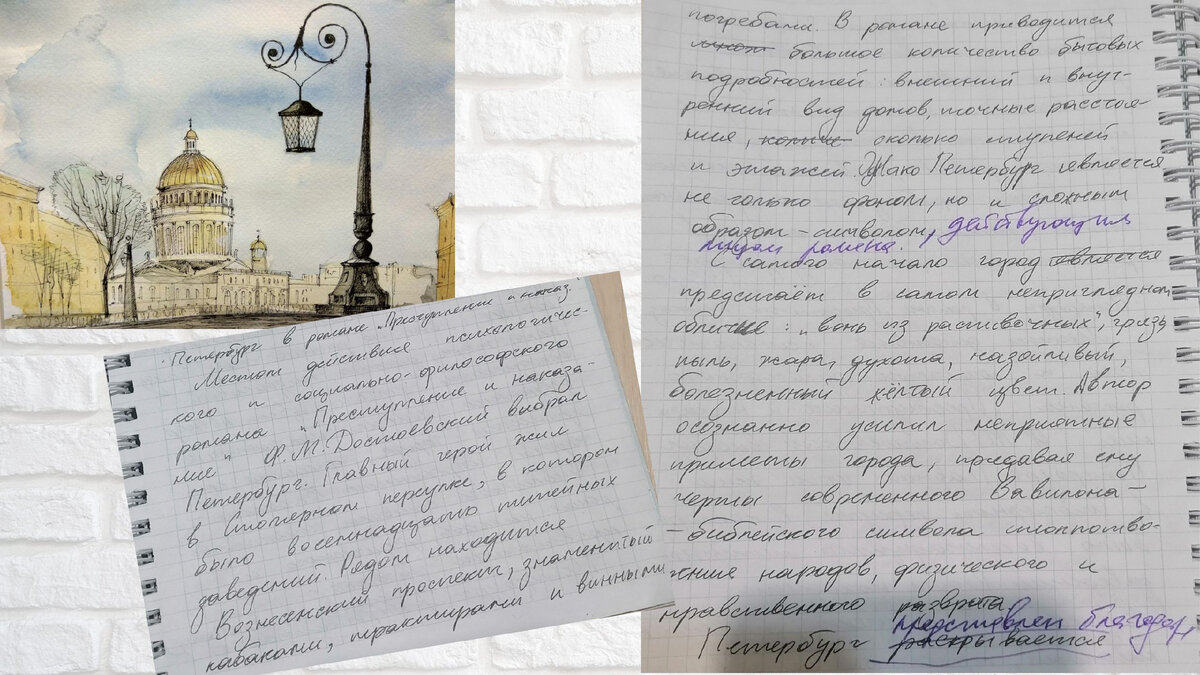 Петербург в романе „Преступление и наказ.
Местом действия психологичес-
кого и социально-философского
романа „Преступление и наказа-
ние" Ф.М.Достоевский выбрал
Петербург. Главный герой жил
в Столярном переулке, в котором
было восемнадцать питейных
заведений. Рядом находится
Вознесенский проспект, знаменитый
кабаками, трактирами и винными
погребами. В романе приводится
большое количество бытовых
подробностей: внешний и внут-
ренний вид домов, точные расстоя-
ния, сколько ступеней
и этажей. Петербург является
не только фоном, но и сложным
образом-символом, действующим
лицом романа.
С самого начало город является
предстаёт в самом неприглядном
обличие: „вонь из распивочных", грязь
пыль, жара, духота, назойливый,
болезненный жёлтый цвет. Автор
осознанно усилил неприятные
приметы города, предавая ему
черты современного Вавилона-
-библейского символа столпотво-
рения народов, физического и
нравственного разврата
представлен благодар
Петербург раскрывается